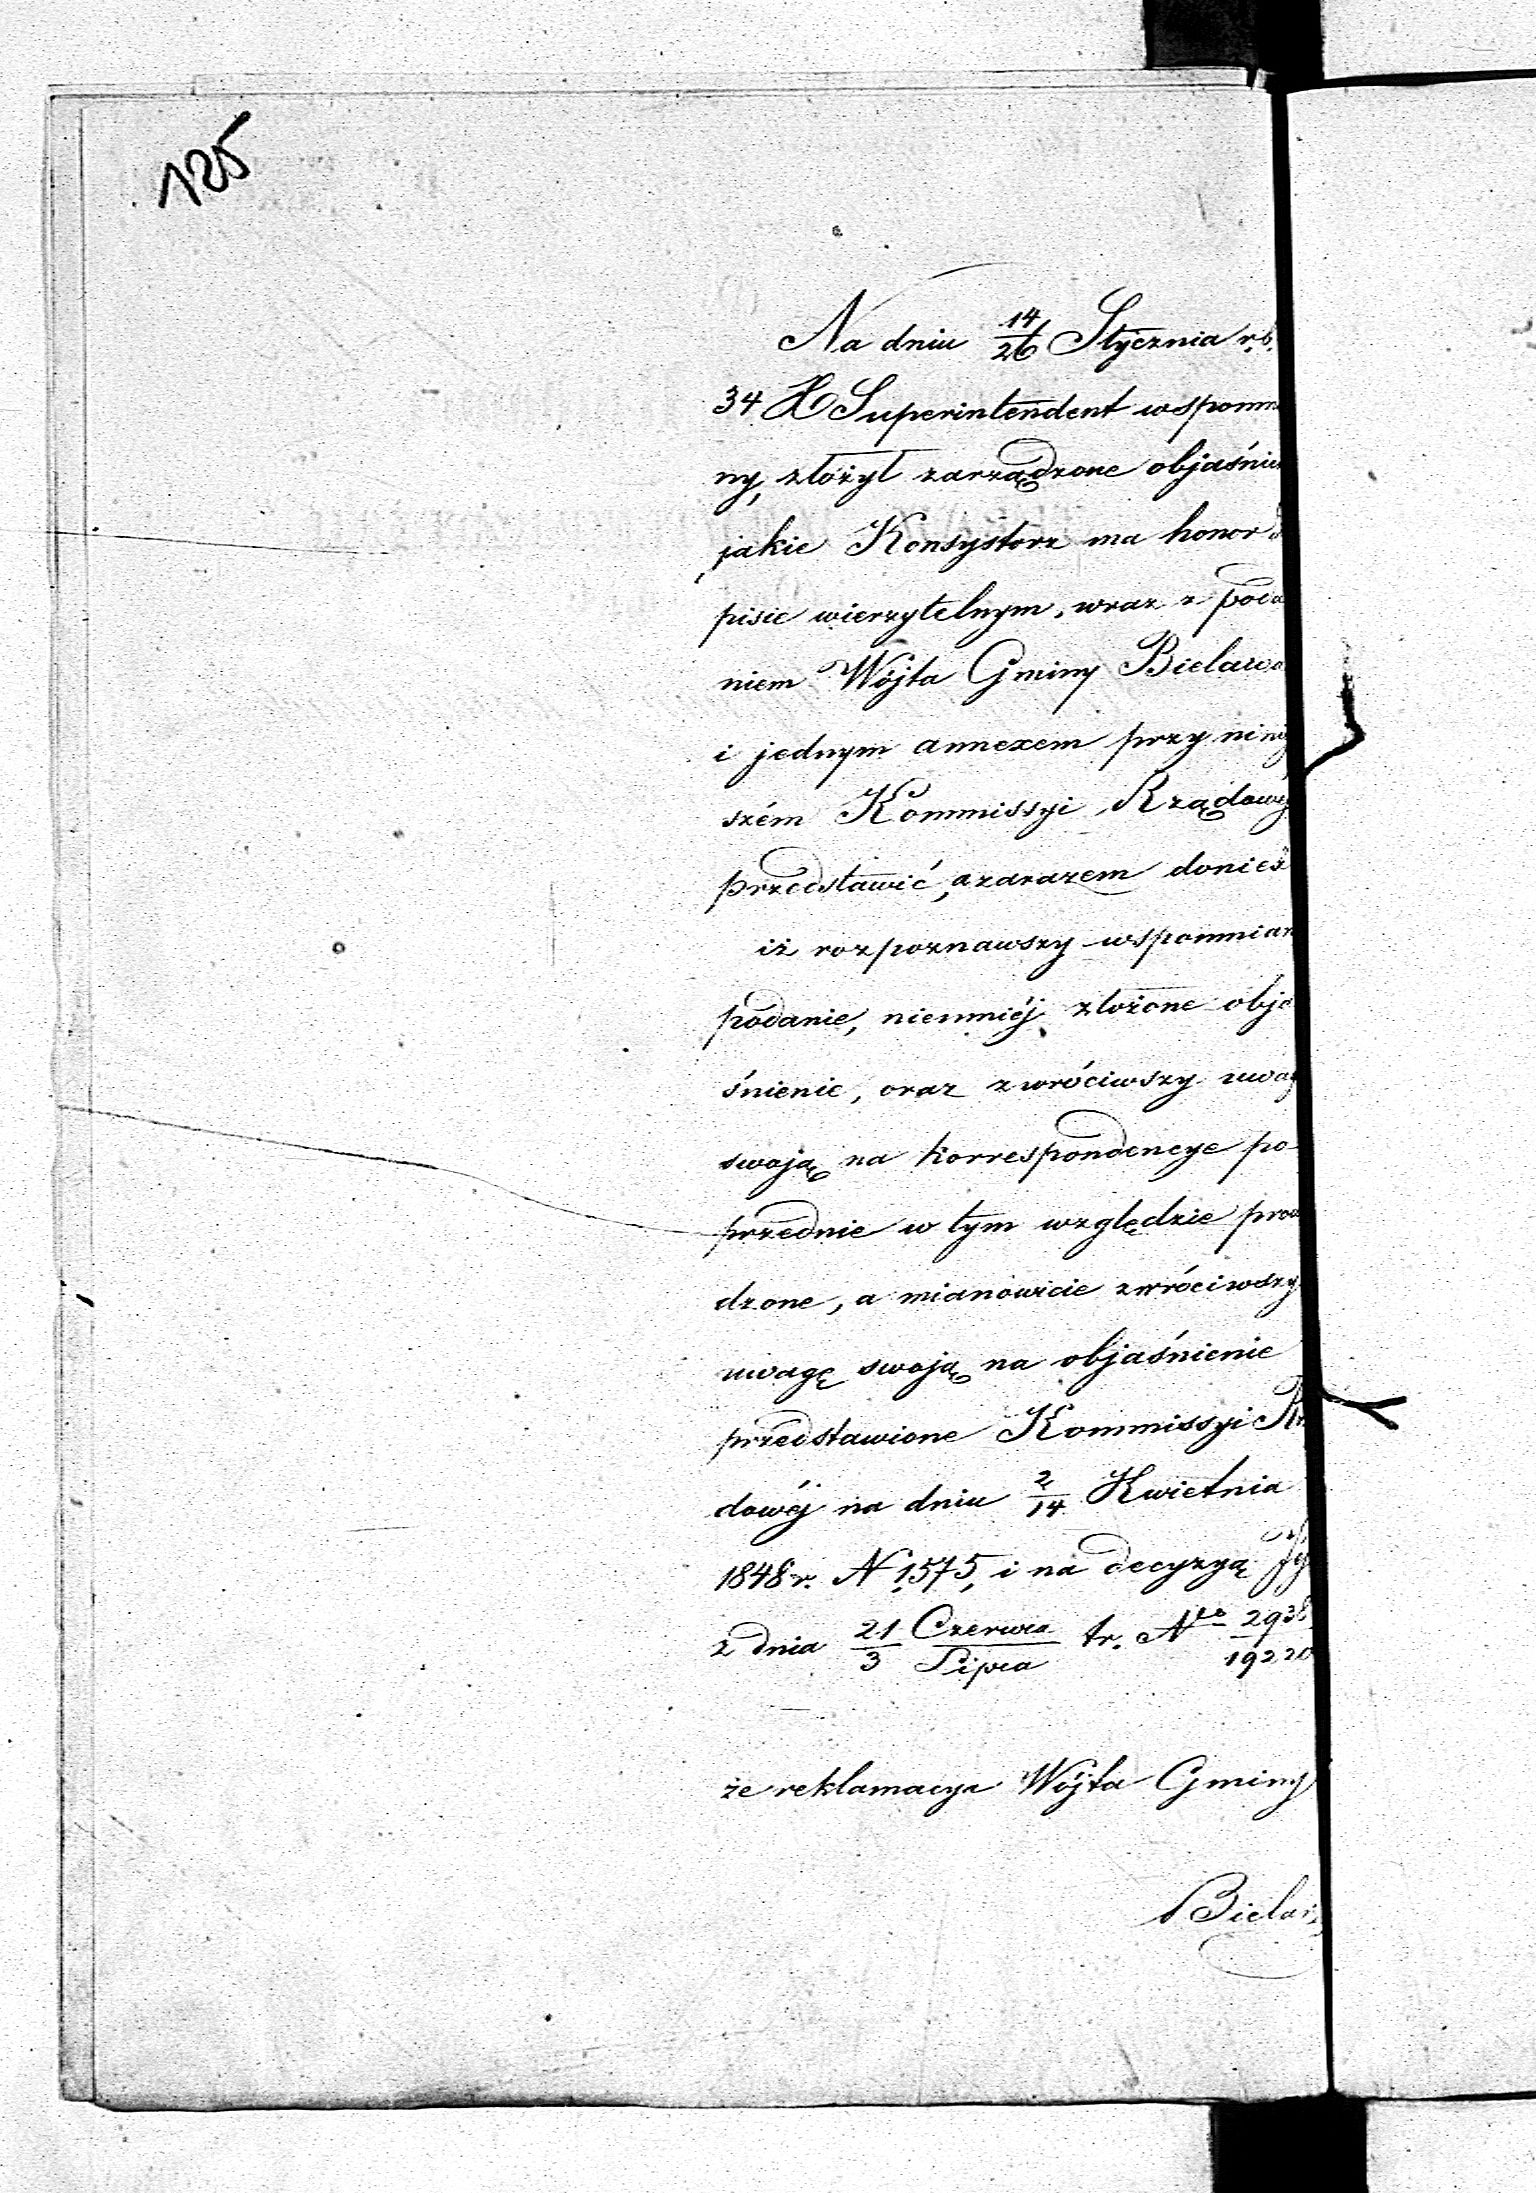 125
Na dniu 14/26 Stycznia r.b.
34 X Superintendent wspomn
ny, złożył zarządzone objaśnie
jakie Konsystorz ma honor
pisie wierzytelnym, wraz z poda
niem Wójta Gminy Bielaws
i jednym annexem przy niniej
szém Kommissyi Rządowéj
przedstawić, a zarazem donieś
iż rozpoznawszy wspomnian
podanie, niemniéj złożone obja
śnienie, oraz zwróciwszy uwag
swoją na korrespondencye po-
przednie w tym względzie prow
dzone, a mianowicie zwróciwszy
uwagę swoją na objaśnienie
przedstawione Kommissyi Rz
dowéj na dniu 2/14 Kwietnia
1848 r. N 1575, i na decyzyą Jéj
z dnia 21 Czerwca/3 Lipca t.r. Nro 2938/19220
że reklamacya Wójta Gminy
Bielaw